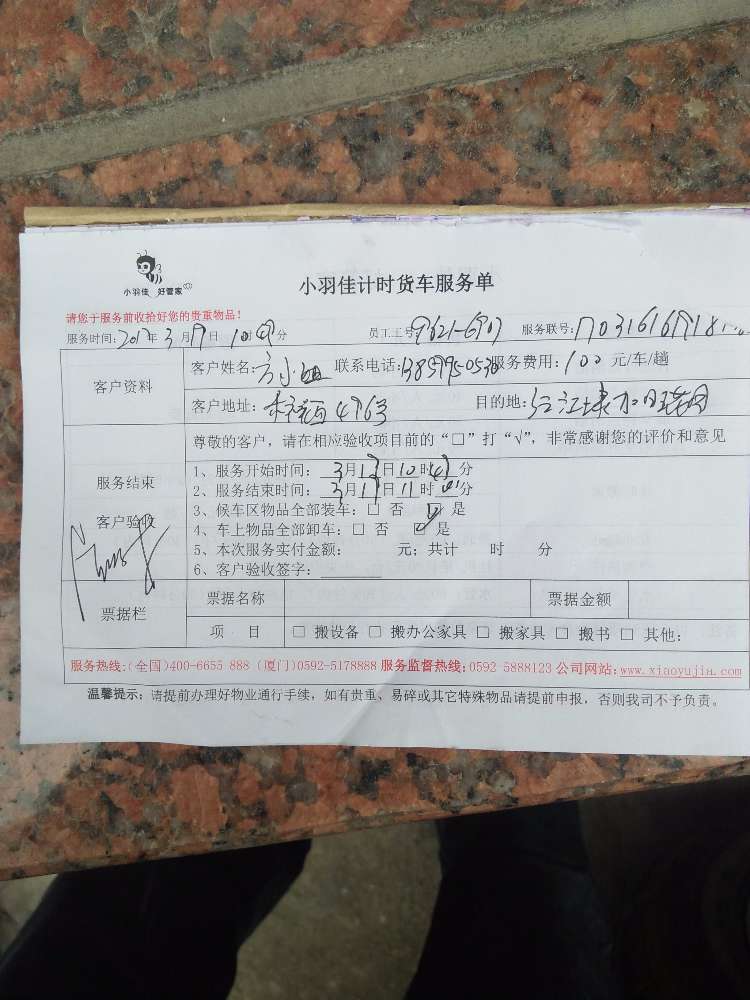 小羽佳 好管家
小羽佳计时货车服务单
请您于服务前收拾好您的贵重物品!
服务时间:2017年3月17日10时 分 员工工号: 服务联号:
客户资料
客户姓名:方小姐 联系电话: 服务费用:100元/车/趟
客户地址: 目的地:
尊敬的客户,请在相应验收项目前的“□”打“√”,非常感谢您的评价和意见
服务结束
客户验收
1、服务开始时间: 3月17日10时 分
2、服务结束时间: 3月17日11时 分
3、候车区物品全部装车:□ 否 ☑ 是
4、车上物品全部卸车:□ 否 ☑ 是
5、本次服务实付金额: 元;共计 时 分
6、客户验收签字:
票据栏
票据名称 票据金额
项 目 □ 搬设备 □ 搬办公家具 □ 搬家具 □ 搬书 □ 其他:
服务热线:(全国)400-6655 888 (厦门)0592-5178888 服务监督热线:0592 5888123 公司网站:www.xiaoyujia.com
温馨提示:请提前办理好物业通行手续,如有贵重、易碎或其它特殊物品请提前申报,否则我司不予负责。